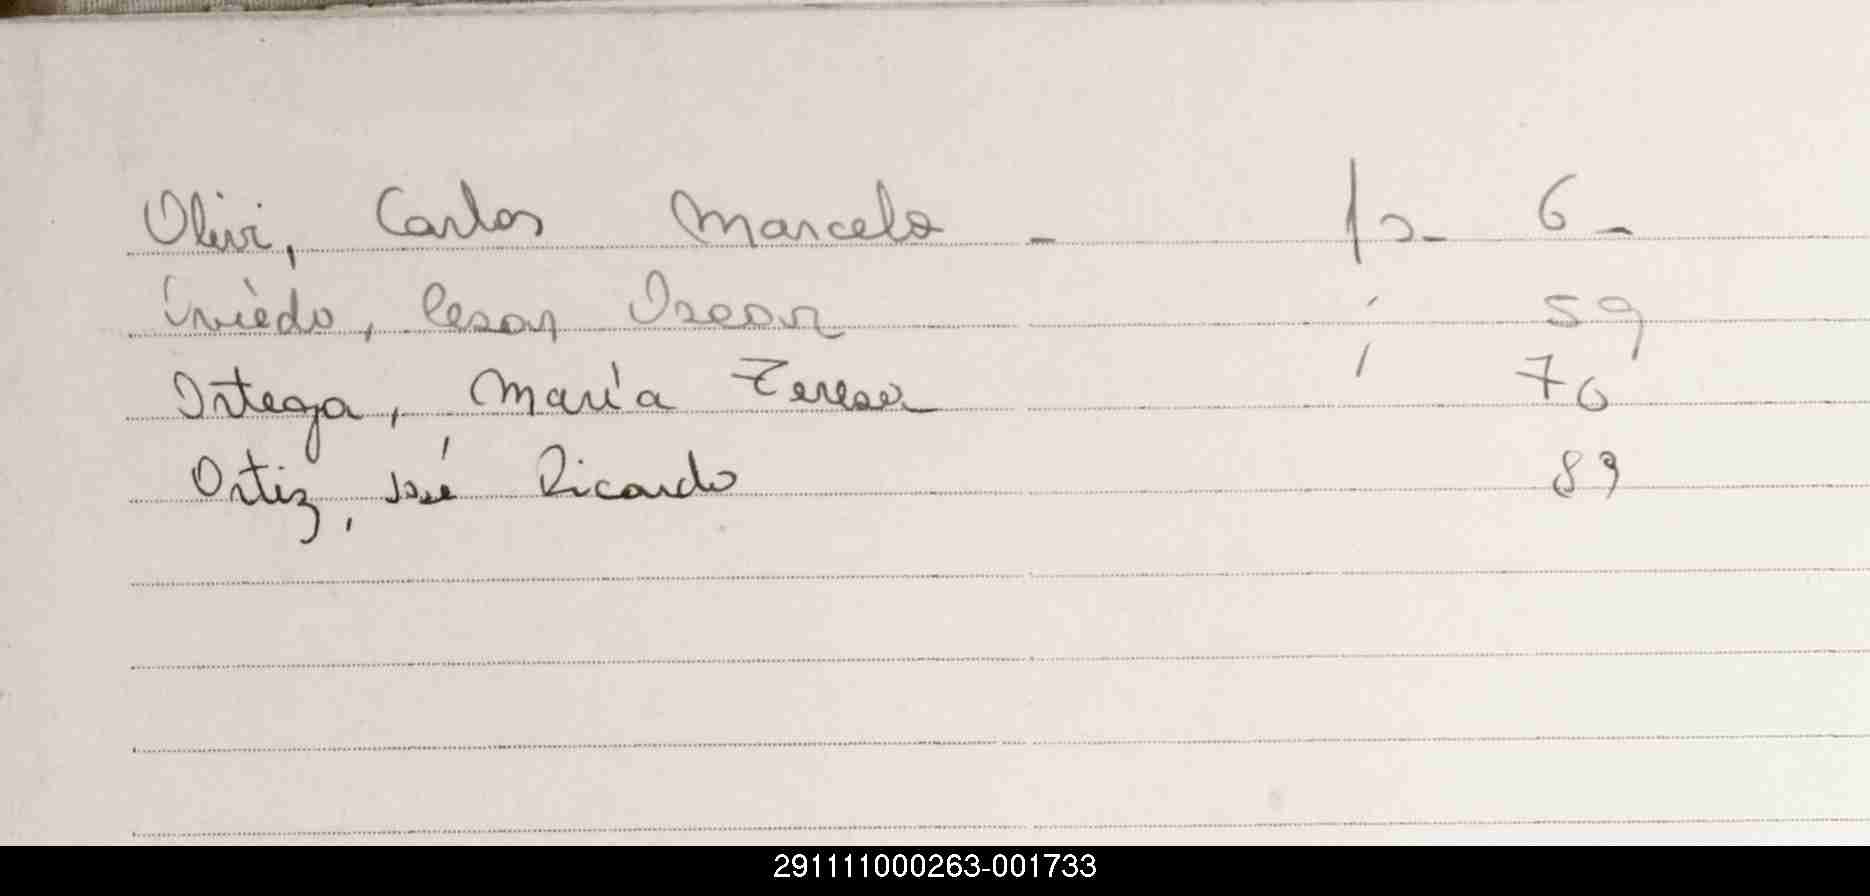 Olivi, Carlos Marcelo - fs- 6-
Oviedo, Cesar Oscar " 59
Ortega, María Teresa " 76
Ortiz, José Ricardo 89
291111000263-001733